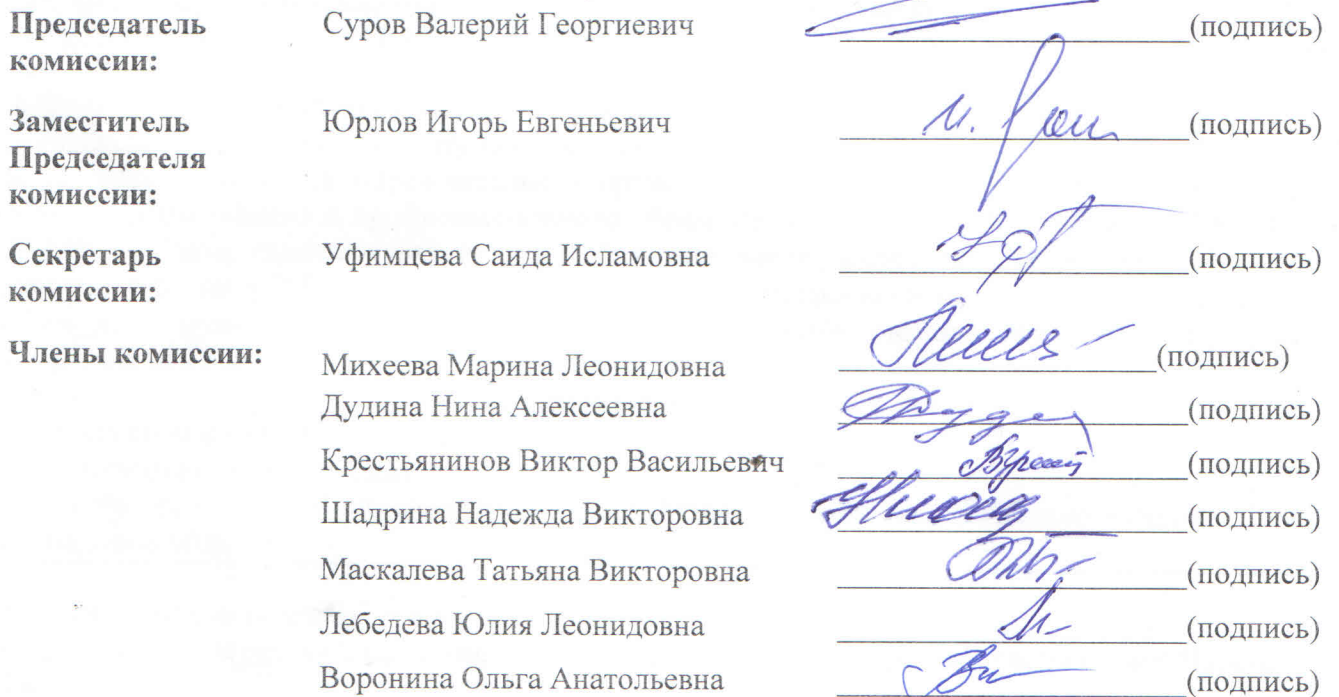 Председатель комиссии: Суров Валерий Георгиевич (подпись)
Заместитель Председателя комиссии: Юрлов Игорь Евгеньевич (подпись)
Секретарь комиссии: Уфимцева Саида Исламовна (подпись)
Члены комиссии: Михеева Марина Леонидовна (подпись)
Дудина Нина Алексеевна (подпись)
Крестьянинов Виктор Васильевич (подпись)
Шадрина Надежда Викторовна (подпись)
Маскалева Татьяна Викторовна (подпись)
Лебедева Юлия Леонидовна (подпись)
Воронина Ольга Анатольевна (подпись)